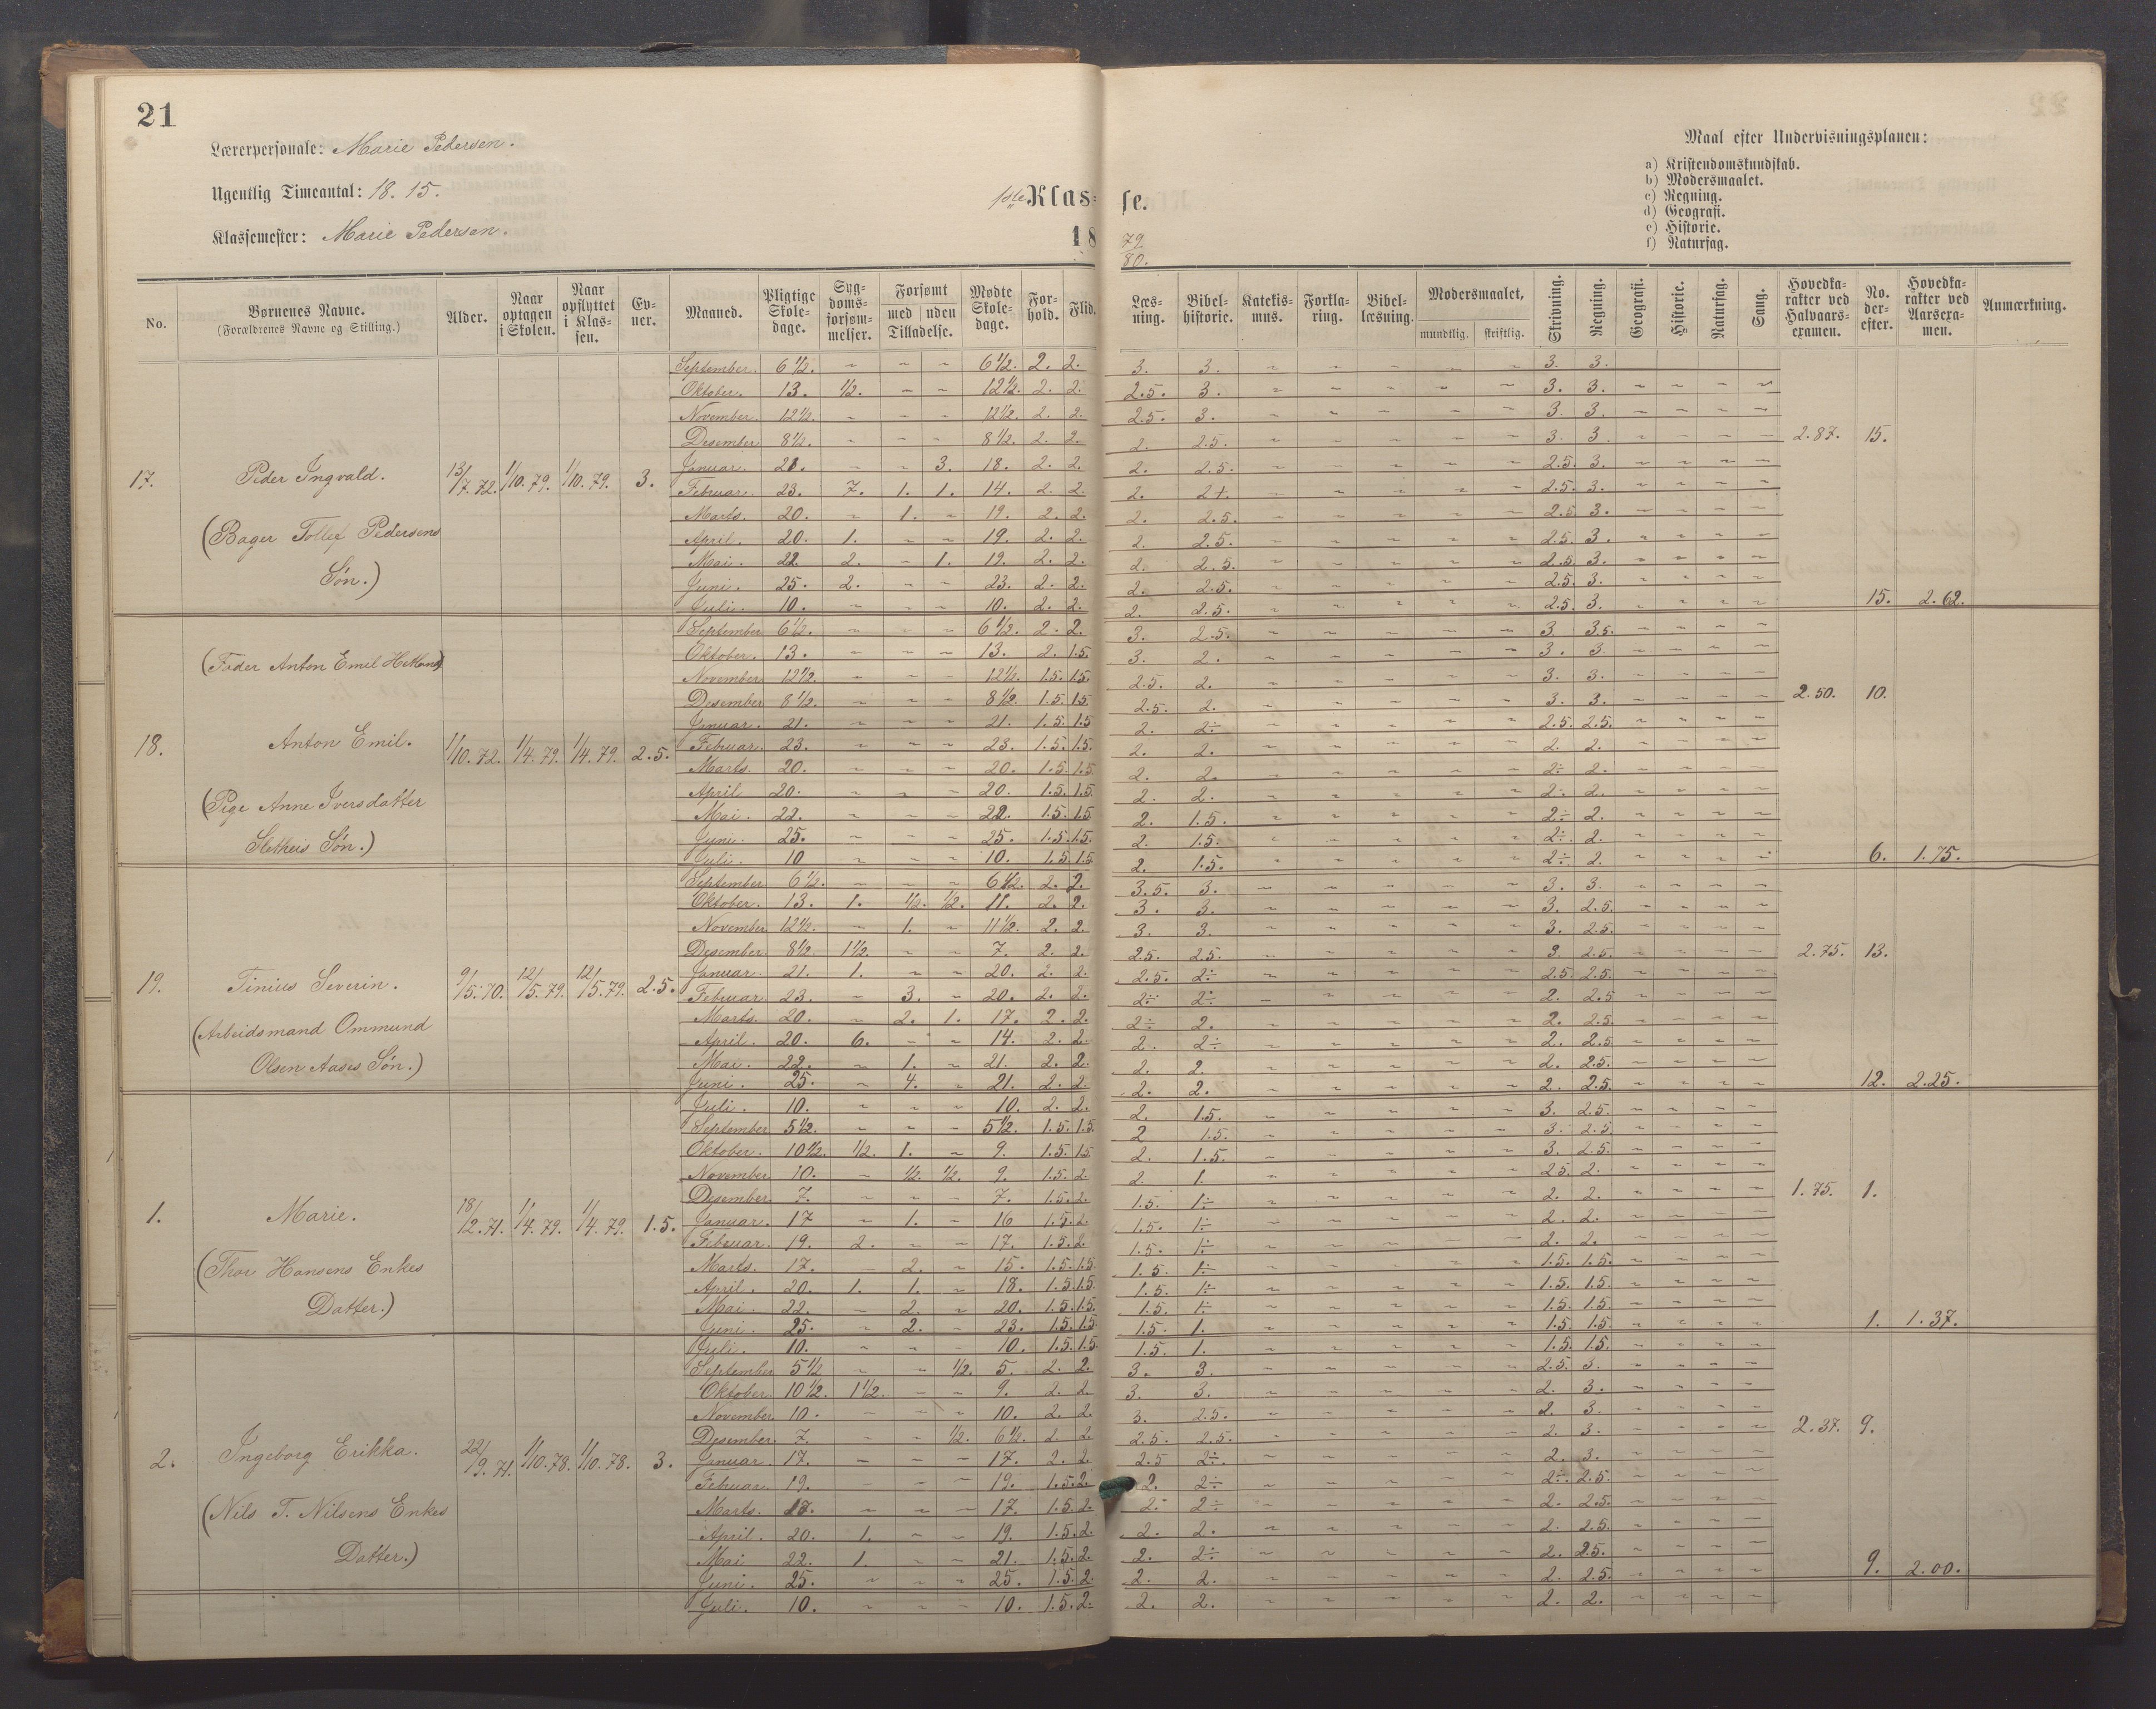 21
Lærerpersonale: Marie Pedersen.
Ugentlig Timeantal: 18. 15.
1ste Klasse.
Klassemester: Marie Pedersen.
1879/80.
Maal efter Undervisningsplanen:
a) Kristendomskundskab.
b) Modersmaalet.
c) Regning.
d) Geografi.
e) Historie.
f) Naturfag.
No. | Børnenes Navne. (Forældrenes Navne og Stilling.) | Alder. | Naar optagen i Skolen. | Naar opflyttet i Klassen. | Evner. | Maaned. | Pligtige Skoledage. | Sygdomsforsømmelser. | Forsømt med uden Tilladelse. | Mødte Skoledage. | Forhold. | Flid. | Læsning. | Bibelhistorie. | Katekismus. | Forklaring. | Bibellæsning. | Modersmaalet, mundtlig. skriftlig. | Skrivning. | Regning. | Geografi. | Historie. | Naturfag. | Sang. | Hovedkarakter ved Halvaarsexamen. | No. derefter. | Hovedkarakter ved Aarsexamen. | Anmærkning.
17. Peder Ingvald. 13/7.72. 1/10.79. 1/10.79. 3.
(Bager Tollef Pedersens
Søn.)
September. 6 1/2. ~ ~ ~ 6 1/2. 2. 2. 3. 3. ~ ~ ~ ~ ~ 3. 3.
Oktober. 13. 1/2. ~ ~ 12 1/2. 2. 2. 2.5. 3. ~ ~ ~ ~ ~ 3. 3. ~ ~ ~ ~
November. 12 1/2. ~ ~ ~ 12 1/2. 2. 2. 2.5. 3. ~ ~ ~ ~ ~ 3. 3. ~ ~ ~ ~
Desember 8 1/2. ~ ~ ~ 8 1/2. 2. 2. 2. 2.5. ~ ~ ~ ~ ~ 3. 3. ~ ~ ~ ~ 2.87. 15.
Januar. 21. ~ ~ 3. 18. 2. 2. 2. 2.5. ~ ~ ~ ~ ~ 2.5. 3. ~ ~ ~ ~
Februar. 23. 7. 1. 1. 14. 2. 2. 2. 2+. ~ ~ ~ ~ ~ 2.5. 3. ~ ~ ~ ~
Marts. 20. ~ 1. ~ 19. 2. 2. 2. 2.5. ~ ~ ~ ~ ~ 2.5 3. ~ ~ ~ ~
April. 20. 1. ~ ~ 19. 2. 2. 2. 2.5. ~ ~ ~ ~ ~ 2.5. 3. ~ ~ ~ ~
Mai. 22. 2. ~ 1. 19. 2. 2. 2. 2.5. ~ ~ ~ ~ ~ 2.5 3. ~ ~ ~ ~
Juni. 25. 2. ~ ~ 23. 2. 2. 2. 2.5. ~ ~ ~ ~ ~ 2.5. 3. ~ ~ ~ ~
Juli. 10. ~ ~ ~ 10. 2. 2. 2. 2.5. ~ ~ ~ ~ ~ 2.5. 3. ~ ~ ~ ~ 15. 2.62.
(Fader Anton Emil Hetland)
18. Anton Emil. 1/10.72. 1/4.79. 1/4.79. 2.5.
(Pige Anne Iversdatter
Søn.)
September 6 1/2. ~ ~ ~ 6 1/2. 2. 2. 3. 2.5. ~ ~ ~ ~ ~ 3 3.5. ~ ~ ~ ~
Oktober. 13. ~ ~ ~ 13. 2. 1.5. 3. 2. ~ ~ ~ ~ ~ 3. 3. ~ ~ ~ ~
November 12 1/2. ~ ~ ~ 12 1/2. 1.5. 1.5. 2.5. 2. ~ ~ ~ ~ ~ 3. 3. ~ ~ ~ ~
Desember 8 1/2. ~ ~ ~ 8 1/2. 1.5. 1.5. 2.5. 2. ~ ~ ~ ~ ~ 3. 3. ~ ~ ~ ~ 2.50. 10.
Januar. 21. ~ ~ ~ 21. 1.5. 1.5 2. 2÷ ~ ~ ~ ~ ~ 2.5. 2.5. ~ ~ ~ ~
Februar. 23. ~ ~ ~ 23. 1.5. 1.5. 2. 2. ~ ~ ~ ~ ~ 2. 2. ~ ~ ~ ~
Marts. 20. ~ ~ ~ 20. 1.5. 1.5. 2. 2. ~ ~ ~ ~ ~ 2÷ 2. ~ ~ ~ ~
April 20. ~ ~ ~ 20. 1.5. 1.5 2. 2. ~ ~ ~ ~ ~ 2÷ 2. ~ ~ ~ ~
Mai. 22. ~ ~ ~ 22. 1.5. 1.5 2. 1.5. ~ ~ ~ ~ ~ 2÷ 2. ~ ~ ~ ~
Juni. 25. ~ ~ ~ 25. 1.5. 1.5. 2. 1.5. ~ ~ ~ ~ ~ 2÷. 2. ~ ~ ~ ~
Juli. 10 ~ ~ ~ 10. 1.5. 1.5. 2. 1.5. ~ ~ ~ ~ ~ 2÷. 2. ~ ~ ~ ~ 6. 1.75.
19. Tinius Severin. 9/5.70. 12/5.79. 12/5.79. 2.5.
(Arbeidsmand Ommund
Olsen Aases Søn.)
September 6 1/2. ~ ~ ~ 6 1/2. 2. 2. 3.5. 3. ~ ~ ~ ~ ~ 3. 3. ~ ~ ~ ~
Oktober. 13. 1. 1/2. 1/2. 11. 2. 2. 3. 3. ~ ~ ~ ~ ~ 3. 2.5. ~ ~ ~ ~
November 12 1/2. ~ 1. ~ 11 1/2. 2. 2. 3. 3. ~ ~ ~ ~ ~ 3. 2.5. ~ ~ ~ ~
Desember 8 1/2. 1 1/2. ~ ~ 7. 2. 2. 2.5. 2.5. ~ ~ ~ ~ ~ 3. 2.5. ~ ~ ~ ~ 2.75. 13.
Januar. 21. 1. ~ ~ 20. 2. 2. 2.5. 2÷ ~ ~ ~ ~ ~ 2.5. 2.5. ~ ~ ~ ~
Februar. 23. ~ 3. ~ 20. 2. 2. 2÷ 2÷ ~ ~ ~ ~ ~ 2. 2.5 ~ ~ ~ ~
Marts. 20. ~ 2. 1. 17. 2. 2. 2÷ 2. ~ ~ ~ ~ ~ 2. 2.5. ~ ~ ~ ~
April. 20. 6. ~ ~ 14. 2. 2. 2. 2÷ ~ ~ ~ ~ ~ 2. 2.5 ~ ~ ~ ~
Mai. 22. ~ 1. ~ 21. 2. 2. 2. 2. ~ ~ ~ ~ ~ 2. 2.5. ~ ~ ~ ~
Juni. 25. ~ 4. ~ 21. 2. 2. 2. 2. ~ ~ ~ ~ ~ 2. 2.5. ~ ~ ~ ~ 12. 2.25.
Juli. 10. ~ ~ ~ 10. 2. 2. 2. 1.5. ~ ~ ~ ~ ~ 3. 2.5. ~ ~ ~ ~
1. Marie. 18/12.71. 1/4.79. 1/4.79. 1.5.
(Thor Hansens Enkes
Datter.)
September 5 1/2. ~ ~ ~ 5 1/2. 1.5. 1.5. 2 1.5. ~ ~ ~ ~ ~ 3. 2.5 ~ ~ ~ ~
Oktober. 10 1/2. 1/2. 1. ~ 9. 1.5. 1.5 2. 1.5. ~ ~ ~ ~ ~ 3. 2.5. ~ ~ ~ ~
November 10. ~ 1/2. 1/2. 9. 1.5. 2. 2. 1. ~ ~ ~ ~ ~ 2.5. 2. ~ ~ ~ ~
Desember 7. ~ ~ ~ 7. 1.5. 2. 1.5. 1÷ ~ ~ ~ ~ ~ 2. 2. ~ ~ ~ ~ 1.75. 1.
Januar. 17 ~ 1. ~ 16 1.5. 2. 1.5. 1÷ ~ ~ ~ ~ ~ 2. 2. ~ ~ ~ ~
Februar. 19. 2. ~ ~ 17. 1.5. 2. 1.5. 1÷ ~ ~ ~ ~ ~ 2. 2. ~ ~ ~ ~
Marts. 17. ~ 2. ~ 15. 1.5. 1.5. 1.5. 1÷ ~ ~ ~ ~ ~ 1.5. 1.5. ~ ~ ~ ~
April. 20. 1. 1. ~ 18. 1.5. 1.5. 1.5. 1÷ ~ ~ ~ ~ ~ 1.5. 1.5. ~ ~ ~ ~
Mai. 22. ~ 2. ~ 20. 1.5. 1.5. 1.5. 1÷ ~ ~ ~ ~ ~ 1.5. 1.5. ~ ~ ~ ~
Juni. 25. ~ 2. ~ 23. 1.5. 1.5 1.5. 1. ~ ~ ~ ~ ~ 1.5. 1.5. ~ ~ ~ ~ 1. 1.37.
Juli. 10. ~ ~ ~ 10. 1.5. 1.5. 1.5. 1. ~ ~ ~ ~ ~ 1.5. 1.5. ~ ~ ~ ~
2. Ingeborg Erikka. 22/9.71. 1/10.78. 1/10.78. 3.
(Nils T. Nilsens Enkes
Datter.)
September 5 1/2 ~ ~ 1/2. 5. 2. 2. 3. 3. ~ ~ ~ ~ ~ 2.5. 3. ~ ~ ~ ~
Oktober. 10 1/2. 1 1/2. ~ ~ 9. 2. 2. 3. 3. ~ ~ ~ ~ ~ 2. 3. ~ ~ ~ ~
November 10. ~ ~ ~ 10. 2. 2. 3. 2.5. ~ ~ ~ ~ ~ 2. 3. ~ ~ ~ ~
Desember. 7. ~ ~ 1/2. 6 1/2. 2. 2. 2.5. 2.5. ~ ~ ~ ~ ~ 2. 3. ~ ~ ~ ~ 2.37. 9.
Januar. 17. ~ ~ ~ 17. 2. 2. 2.5 2÷. ~ ~ ~ ~ ~ 2. 3. ~ ~ ~ ~
Februar. 19. ~ ~ ~ 19. 1.5. 2. 2. 2÷ ~ ~ ~ ~ ~ 2÷. 2.5. ~ ~ ~ ~
Marts. 17. ~ ~ ~ 17. 1.5. 2. 2. 2÷ ~ ~ ~ ~ ~ 2. 2.5. ~ ~ ~ ~
April. 20. 1. ~ ~ 19. 1.5. 2. 2. 2. ~ ~ ~ ~ ~ 2. 2.5. ~ ~ ~ ~
Mai 22. 1. ~ ~ 21. 1.5. 2. 2. 2÷ ~ ~ ~ ~ ~ 2. 2.5. ~ ~ ~ ~
Juni. 25. ~ ~ ~ 25. 1.5. 2. 2. 2. ~ ~ ~ ~ ~ 2. 2.5. ~ ~ ~ ~ 9. 2.00.
Juli. 10. ~ ~ ~ 10. 1.5. 2. 2. 2. ~ ~ ~ ~ ~ 2. 2. ~ ~ ~ ~